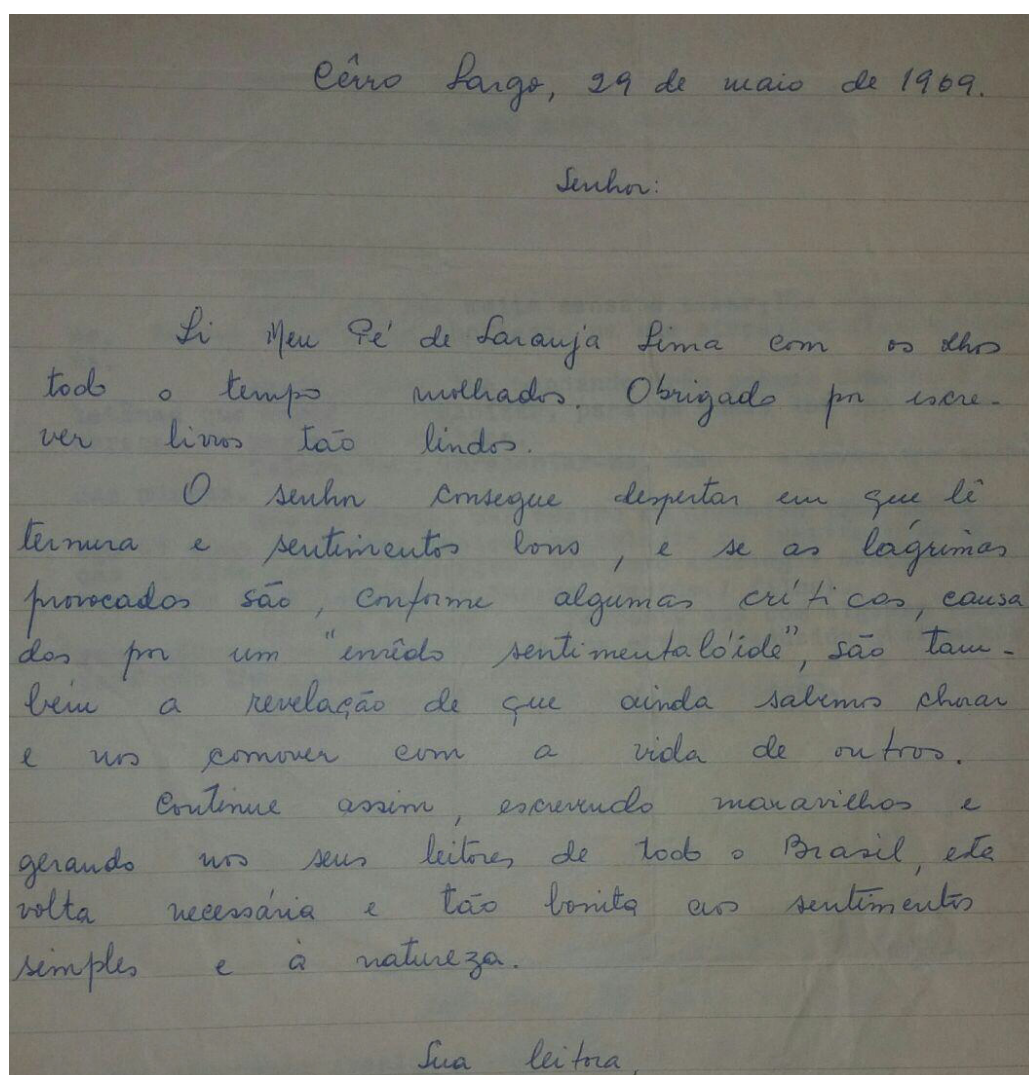 Cêrro Largo, 29 de maio de 1969.
Senhor:
Li Meu Pé de Laranja Lima com os olhos
todo o tempo molhados. Obrigado por escre-
ver livros tão lindos.
O senhor consegue despertar em que lê
ternura e sentimentos bons, e se as lágrimas
provocados são, conforme algumas críticas, causa
das por um "enrêdo sentimentalóide", são tam-
bém a revelação de que ainda sabemos chorar
e nos comover com a vida de outros.
Continue assim, escrevendo maravilhas e
gerando nos seus leitores de todo o Brasil, esta
volta necessária e tão bonita aos sentimentos
simples e à natureza.
Sua leitora,